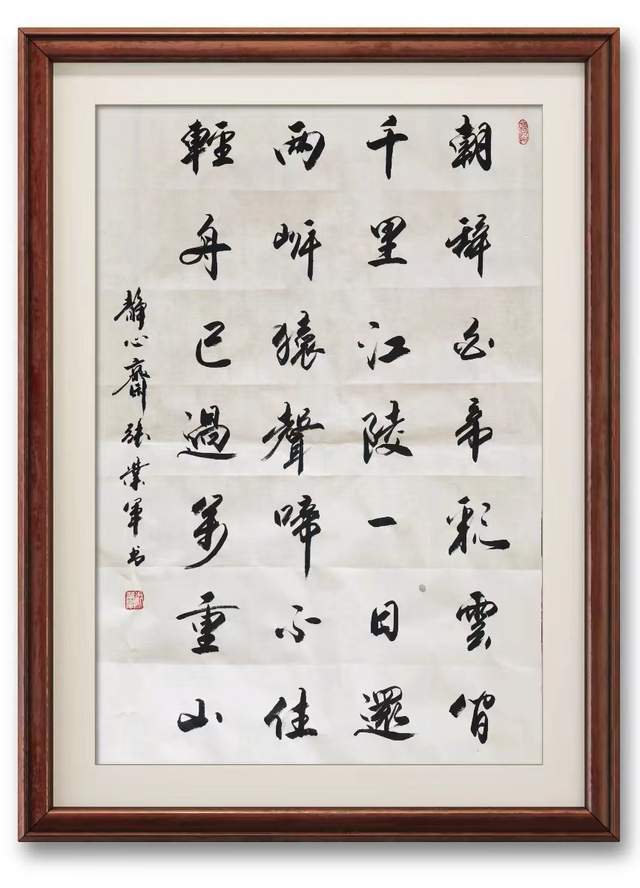 朝辭白帝彩雲間
千里江陵一日還
兩岸猿聲啼不住
輕舟已過萬重山
靜心齋張業軍书